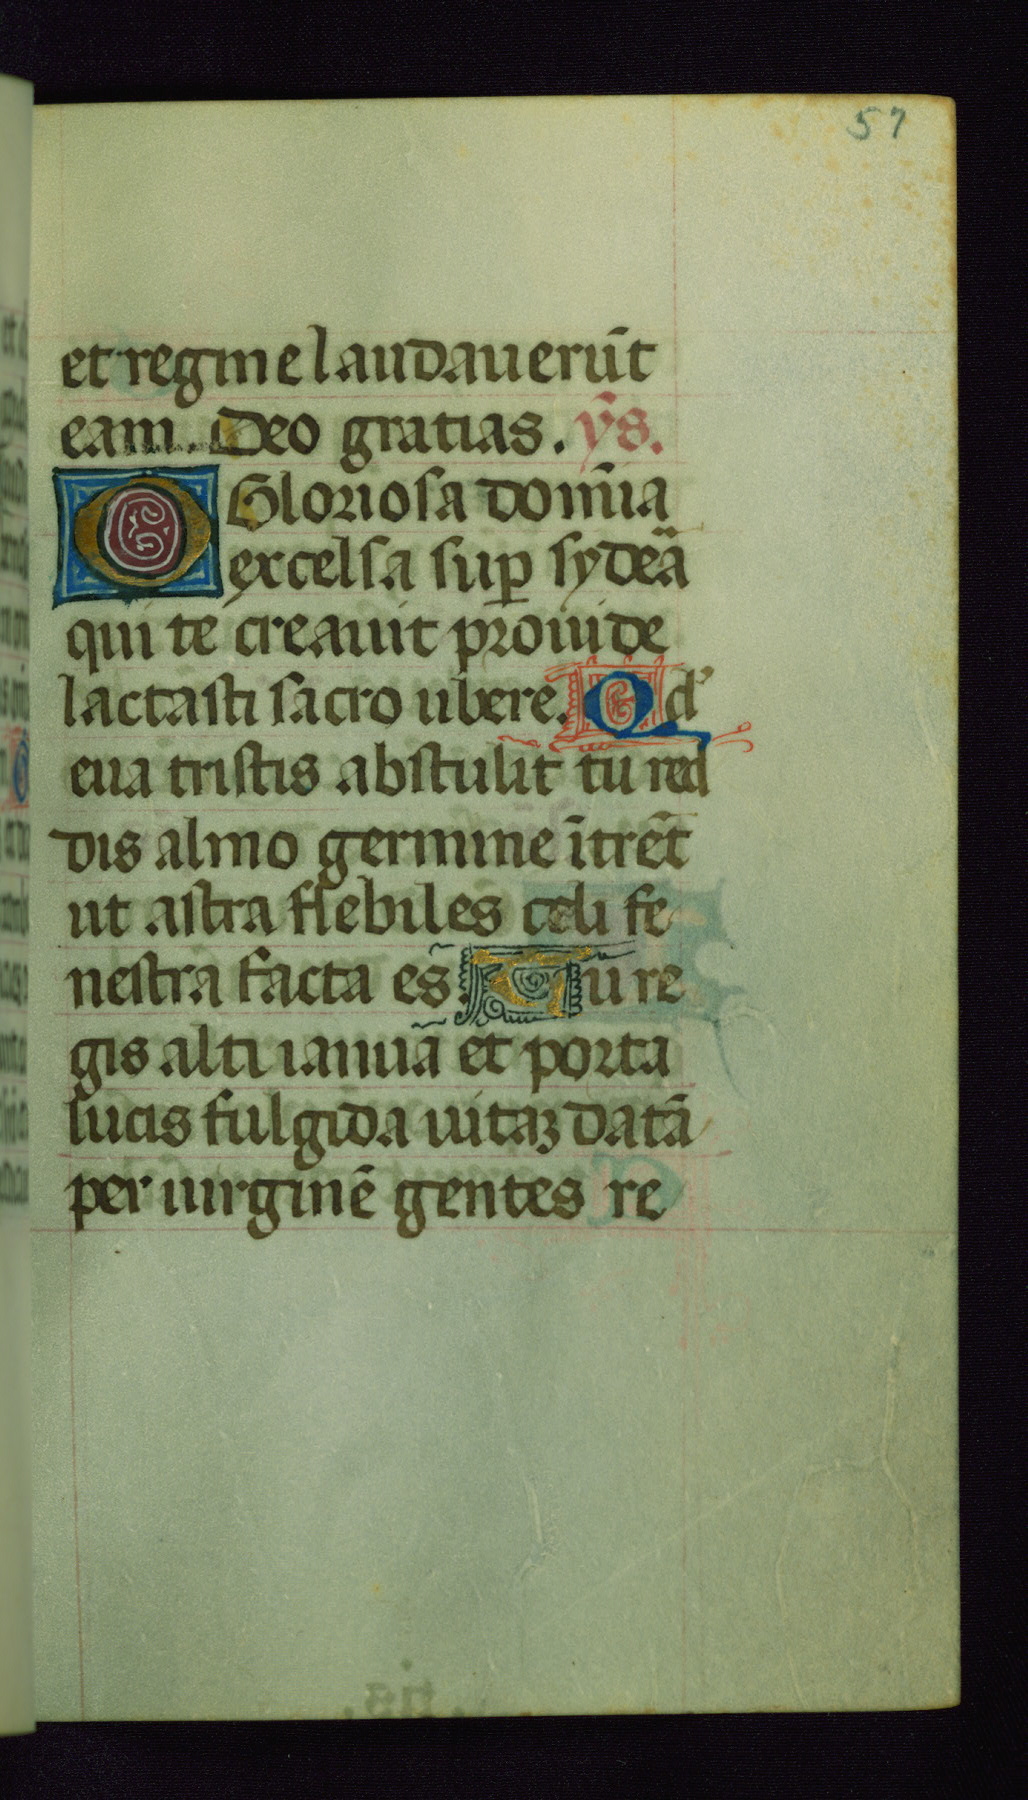 57
et regine laudauerūt
eam. Deo gratias. ȳs.
O Gloriosa domīa
excelsa sup̄ sydeā
qui te creauit prouide
lactasti sacro ubere. Qd'
eua tristis abstulit tu red
dis almo germine ītrēt
ut astra flebiles celi fe
nestra facta es̄. Tu re
gis alti ianuā et porta
lucis fulgida uitaꝫ datā
per uirginē gentes re